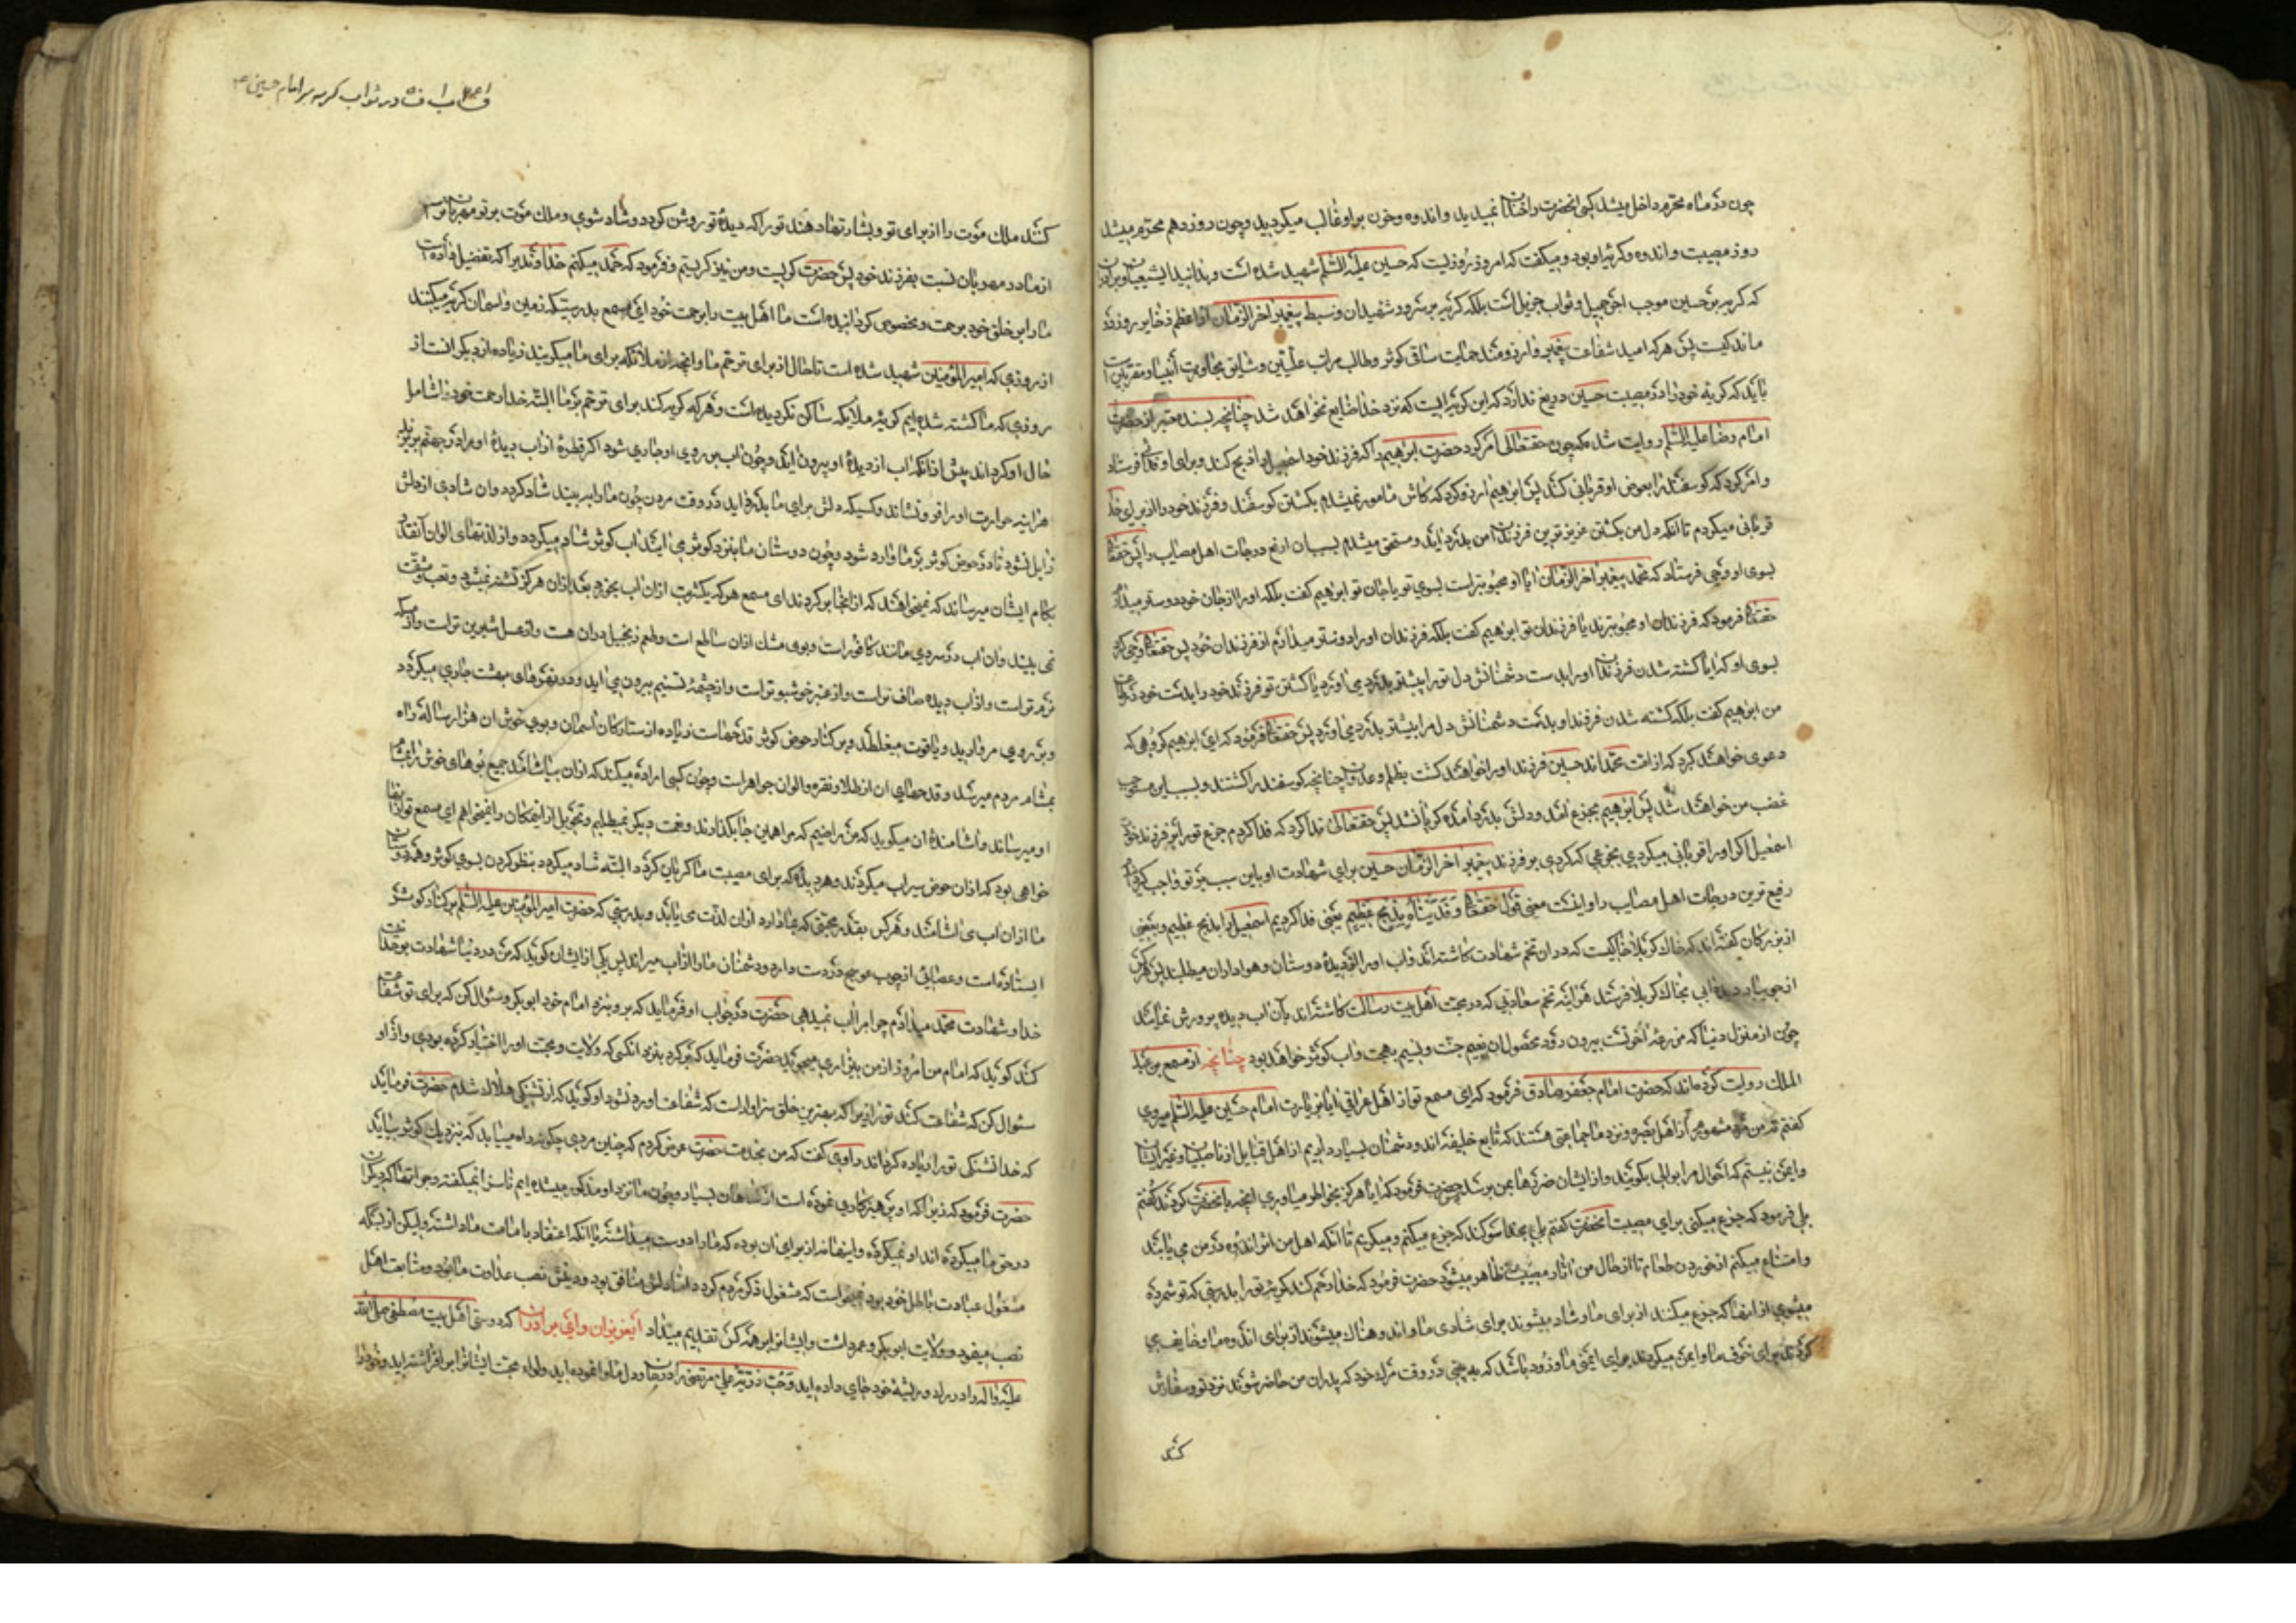 چون در ماه محرم داخل میشد کسی انحضرت را خندان نمیدید و اندوه و حزن بر او غالب میکردید و چون روز دهم محرم میشد
روز مصیبت و اندوه و کریه او بود و میکفت که امروز روزیست که حسین علیه السلم شهید شده است و بدانید ایشیعیان و برادران
که کریه بر حسین موجب اجر جمیل و ثواب جزیل است بلکه کریه بر سرور شهیدان و سبط پیغمبر اخر الزمان از اعظم ذخایر روز
ماند کیست پس هر که امید شفاعت پیغمبر دارد و ارزومند حمایت ساقی کوثر و طالب مراتب علیین و شایق مجاورت انبیا و مقربین است
باید که کریه خود را در مصیبت حسین دریغ ندارد که این کریه ایست که نزد خدا ضایع نخواهد شد چنانچه بسند معتبر از حضرت
امام رضا علیه السلم روایت شده که چون حقتعالی امر کرد حضرت ابرهیم را که فرزند خود اسمعیل را ذبح کند و برای او فدائی فرستاد
و امر کرد که کوسفند را بعوض او قربانی کند پس ابرهیم ارزو کرد که کاش مامور نمیشدم بکشتن کوسفند و فرزند خود را از برای خدا
قربانی میکردم تا انکه دل من بکشتن عزیزترین فرزندان من بدرد اید و مستحق میشدم بسبب ان ارفع درجات اهل مصایب را پس حقتعالی
بسوی او وحی فرستاد که محمد پیغمبر اخر الزمان ایا او محبوبتر است بسوی تو یا جان تو ابرهیم کفت بلکه او را از جان خود دوستر میدارم
حقتعالی فرمود که فرزندان او محبوبترند یا فرزندان تو ابرهیم کفت بلکه فرزندان او را دوستتر میدارم از فرزندان خود پس حقتعالی وحی کرد
بسوی او که ایا کشته شدن فرزندان او بر دست دشمنانش دل تو را بیشتر بدرد می اورد یا کشتن تو فرزند خود را بدست خود در طاعت
من ابرهیم کفت بلکه کشته شدن فرزند او بدست دشمنانش دل مرا بیشتر بدرد می اورد پس حقتعالی فرمود که ای ابرهیم کروهی که
دعوی خواهند کرد که از امت محمداند حسین فرزند او را خواهند کشت بظلم و عدوان چنانچه کوسفند را کشند و بسبب این مستوجب
غضب من خواهند شد پس ابرهیم بجزع امد و دلش بدرد امده کریان شد پس حقتعالی ندا کرد که فدا کردم جزع تو را بر فرزند خود
اسمعیل اکر او را قربانی میکردی بجزعی که کردی بر فرزند پیغمبر اخر الزمان حسین برای شهادت او باین سبب بر تو واجب کردم
رفیع ترین درجات اهل مصایب را و اینست معنی قول حقتعالی و فدیناه بذبح عظیم یعنی فدا کردیم اسمعیل را بذبح عظیم و بعضی
از بزرکان کفته اند که خاک کربلا خاکیست که در ان تخم شهادت کاشته اند و اب او را از دیده دوستان و هواداران میطلبند پس هر کس
از جویبار دیده ابی بخاک کربلا فرستد هراینه تخم سعادتی که در محبت اهل بیت رسالت کاشته اند بان اب دیده پرورش نمایند
چون از منزل دنیا که مزرعه اخرتست بیرون رود محصول ان نعیم جنت و نسیم بهجت و اب کوثر خواهد بود چنانچه از مسمع بن عبد
الملک روایت کرده اند که حضرت امام جعفر صادق فرمود که ای مسمع تو از اهل عراقی ایا بزیارت امام حسین علیه السلم میروی
کفتم نه من مرد مشهورم از اهل بصره و نزد ما جماعتی هستند که تابع خلیفه اند و دشمنان بسیار داریم از اهل قبایل از ناصبیان و غیر ایشان
و ایمن نیستم که احوال مرا بوالی بکویند و از ایشان ضررها بمن برسد حضرت فرمود که ایا هرکز بخاطر میاوری انچه بانحضرت کردند کفتم
بلی فرمود که جزع میکنی برای مصیبت انحضرت کفتم بلی بخدا سوکند که جزع میکنم و میکریم تا انکه اهل من اثر اندوه در من می یابند
و امتناع میکنم از خوردن طعام تا از حال من اثار مصیبت ظاهر میشود حضرت فرمود که خدا رحم کند کریه تو را بدرستی که تو شمرده
میشوی از انها که جزع میکنند از برای ما و شاد میشوند برای شادی ما و اندوهناک میشوند از برای اندوه ما و خایف می
کردند برای خوف ما و ایمن میکردند برای ایمنی ما و زود باشد که به بینی در وقت مرک خود که پدران من حاضر شوند نزد تو و سفارش
کنند
در ثواب کریه بر امام حسین ع
کنند ملک موت را از برای تو و بشارتها دهند تو را که دیده تو روشن کردد و شاد شوی و ملک موت بر تو مهربانتر باشد
از مادر مهربان نسبت بفرزند خود پس حضرت کریست و من نیز کریستم و فرمود که حمد میکنم خداوندیرا که تفضیل داده است
ما را بر خلق خود برحمت و مخصوص کردانیده است ما اهل بیت را برحمت خود ای مسمع بدرستیکه زمین و اسمان کریه میکنند
از روزی که امیر المؤمنین شهید شده است تا حال از برای ترحم ما و انچه از ملائکه برای ما میکریند زیاده از دیکرانست از
روزی که ما کشته شده ایم کریه ملایکه ساکن نکردیده است و هر که کریه کند برای ترحم بر ما البته خدا رحمت خود را شامل
حال او کرداند پیش از انکه اب از دیده او بیرون اید و چون اب بر روی او جاری شود اکر قطره از اب دیده او را در جهنم بریزند
هراینه حرارت او را فرو نشاند و کسیکه دلش برای ما بدرد اید در وقت مردن چون ما را ببیند شاد کردد و ان شادی از دلش
زایل نشود تا در حوض کوثر بر ما وارد شود و چون دوستان ما بنزد کوثر می ایند اب کوثر شاد میکردد و از لذتهای الوان انقدر
بکام ایشان میرساند که نمیخواهند که از انجا برکردند ای مسمع هر که یکشربت از ان اب بخورد بعد از ان هرکز تشنه نمیشود و تعب و مشقت
نمی بیند و ان اب در سردی مانند کافور است و بوی مشک از ان ساطع است و طعم زنجبیل در ان هست و از عسل شیرین تر است و از مسکه
نرم تر است و از اب دیده صاف تر است و از عنبر خوشبوتر است و از چشمه تسنیم بیرون می اید و در نهرهای بهشت جاری میکردد
و بر روی مروارید و یاقوت میغلطد و بر کنار حوض کوثر قدحهاست زیاده از ستارکان اسمان و بوی خوش ان هزار ساله راه
بمشام مردم میرسد و قدحهای ان از طلا و نقره و الوان جواهر است و چون کسی اراده میکند که از ان بیاشامد جمیع بوهای خوش را بمشام
او میرساند و اشامنده ان میکوید که من راضیم که مرا همین جا بکذارند و نعمت دیکر نمیطلبم و تحویل از اینمکان را نمیخواهم ای مسمع تو از انها
خواهی بود که از ان حوض سیراب میکردند و هر دیده که برای مصیبت ما کریان کردد البته شاد میکردد بنظر کردن بسوی کوثر و همه دوستان
ما از ان اب می اشامند و هر کس بقدر محبتی که بما دارد از ان لذت می یابد و بدرستی که حضرت امیر المؤمنین علیه السلم بر کنار کوثر
ایستاده است و عصائی از چوب عوسج در دست دارد و دشمنان ما را از اب میراند پس یکی از ایشان کوید که من در دنیا شهادت بوحدانیت
خدا و شهادت محمد میدادم چرا مرا اب نمیدهی حضرت در جواب او فرماید که برو بنزد امام خود ابو بکر و سئوال کن که برای تو شفاعت
کند کوید که امام من امروز از من بیزاری میجوید حضرت فرماید که برکرد بنزد انکسی که ولایت و محبت او را اختیار کرده بودی و از او
سئوال کن که شفاعت کند تو را زیرا که بهترین خلق سزاوار است که شفاعت او رد نشود او کوید که از تشنکی هلاک شدم حضرت فرماید
که خدا تشنکی تو را زیاده کرداند راوی کفت که من بخدمت حضرت عرض کردم که چنین مردی چکونه راه مییابد که نزدیک کوثر بیاید
حضرت فرمود که زیرا که او پرهیزکاری نموده است از کناهان بسیار و چون ما نزد او مذکور میشده ایم ناسزا نمیکفته و جراتها که دیکران
در حق ما میکرده اند او نمیکرده و اینها نه از برای ان بوده که ما را دوست میداشته یا انکه اعتقاد بامامت ما داشته ولیکن از بسکه
مشغول عبادت باطل خود بوده نمیخواست که مشغول ذکر مردم کردد اما دلش منافق بود و دینش نصب عداوت ما بود و متابعت اهل
نصب مینمود و ولایت ابو بکر و عمر داشت و ایشانرا بر همه کس تقدیم میداد ایعزیزان و ای برادران که دوستی اهل بیت مصطفی صلی الله
علیه و اله را در دل و ریشه خود جای داده اید و محبت ذریه علی مرتضی را در جان و دل ماوا نموده اید و لواء محبت ایشانرا بر افراشته اید